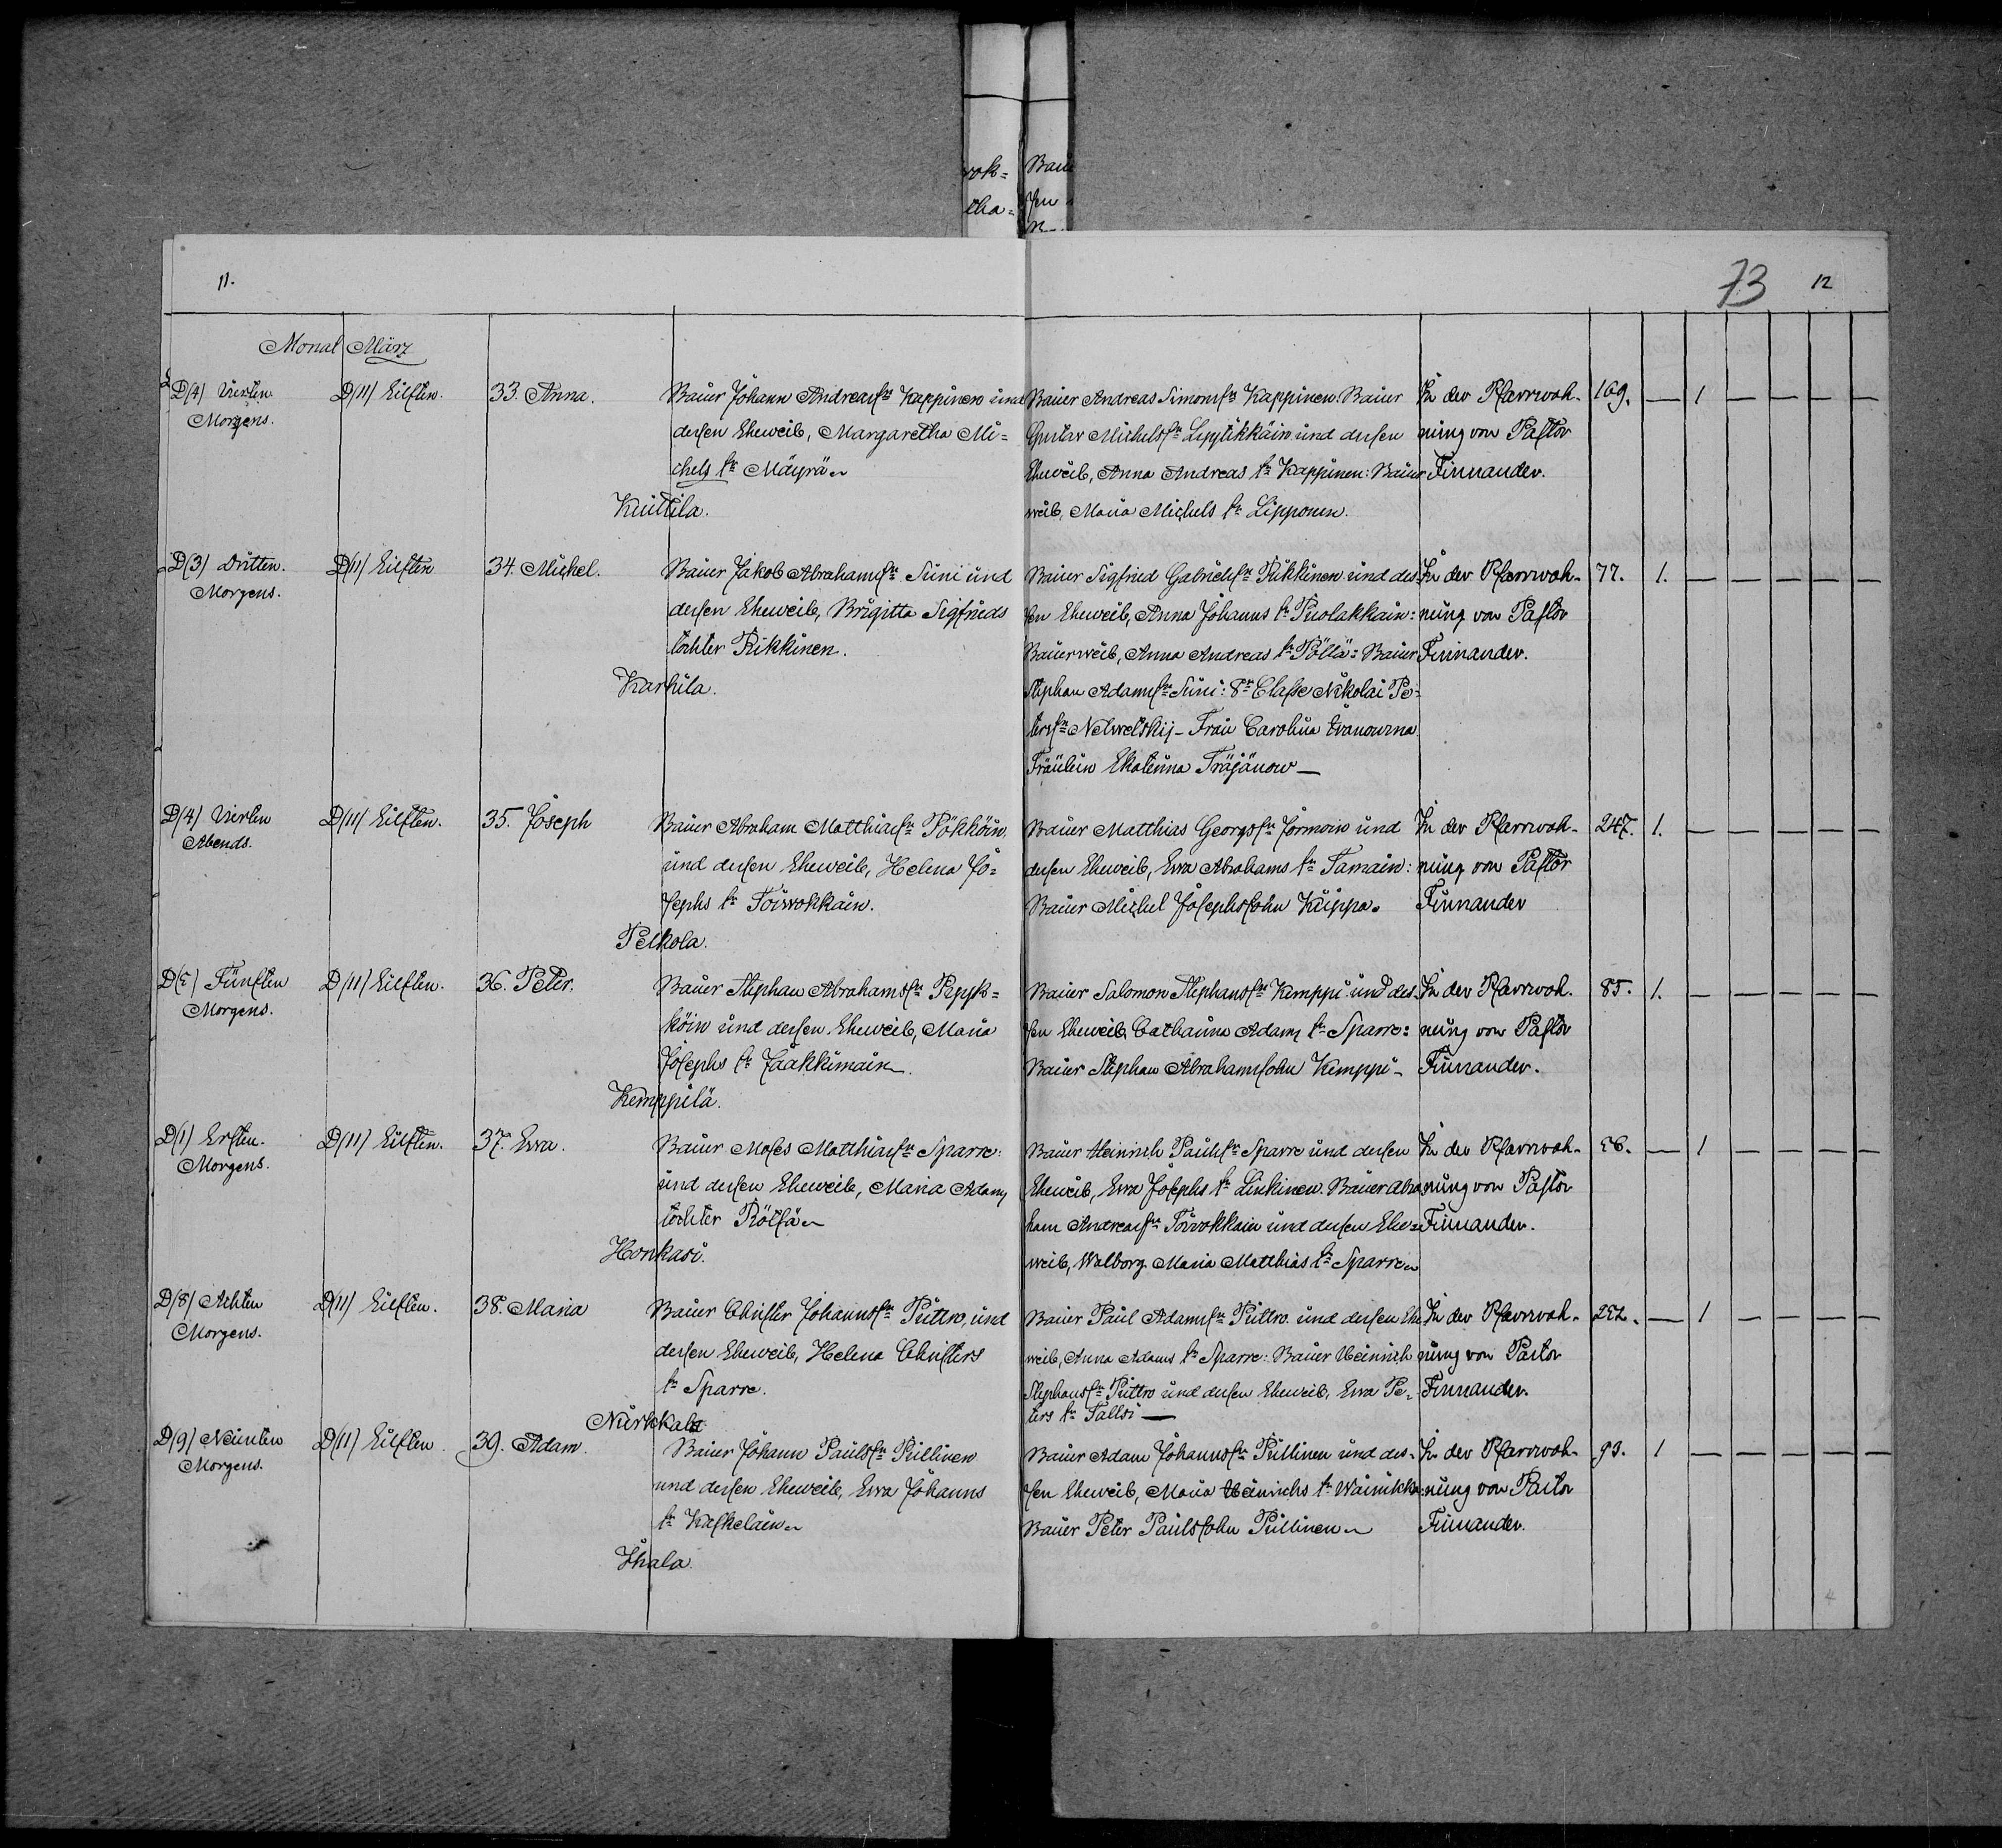 rok=
tha=
Bau
11.
73
12
Monat März
D(4) Vierten
Morgens.
D(11) Eilften.
33. Anna.
Bauer Johann Andreassn Kappinen und
dessen Eheweib, Margaretha Mi=
chels tr Mäyrä
Kuittila.
Bauer Andreas Simonssn Kappinen. Bauer
Gustav Michelssn und dessen
Eheweib, Anna Andreas tr Kappinen: Bauer
weib, Maria Michels tr Lipponen.
In der Pfarrwoh-
nung von Pastor
Finnander.
169. — 1 — — — —
D(3) Dritten.
Morgens.
D(11) Eilften
34. Michel.
Bauer Jakob Abrahamssn Suni und
dessen Eheweib, Brigitta Sigfrieds
tochter Pukkinen.
Karhila.
Bauer Sigfried Gabrielssn Pukkinen und des-
sen Eheweib, Anna Johanns tr Puolakkain:
Bauerweib, Anna Andreas tr Pöllä= Bauer
Stephan Adamssn Suni: 8n Classe Nikolai Pe-
terssn - Frau Carolina Ivanowna
Fräulein Ekaterina Träjänow —
In der Pfarrwoh-
nung von Pastor
Finnander.
77. 1. — — — — —
D(4) Vierten
Abends.
D(11) Eilften.
35. Joseph
Bauer Abraham Matthiassn Pökköin,
und dessen Eheweib, Helena Jo=
sephs tr Toiwokkain.
Pelkola.
Bauer Matthias Georgssn Jormoin und
dessen Eheweib, Ewa Abrahams tr Tamain:
Bauer Michel Josephssohn Kuippa.
In der Pfarrwoh-
nung von Pastor
Finnander
247. 1. — — — — —
D(5) Fünften
Morgens.
D(11) Eilften.
36. Peter.
Bauer Stephan Abrahamssn Repyk=
köin und dessen Eheweib, Maria
Josephs tr Jaakkimain
Kemppilä.
Bauer Salomon Stephanssn Kemppi und des-
sen Eheweib, Catharina Adams tr Sparre:
Bauer Stephan Abrahamssohn Kemppi -
In der Pfarrwoh.
nung von Pastor
Finnander.
85. 1. — — — — —
D(1) Ersten.
Morgens.
D(11) Eilften.
37. Ewa.
Bauer Moses Matthiassn Sparre
und dessen Eheweib, Maria Adams
tochter Rötsä
Honkasi.
Bauer Heinrich Paulssn Sparre und dessen
Eheweib, Ewa Josephs tr Linkinen. Bauer Abra
ham Andreassn Toiwokkain und dessen Ehe=
weib, Walborg Maria Matthias tr Sparre
In der Pfarrwoh-
nung von Pastor
Finnander.
56. — 1 — — — —
D(8) Achten
Morgens.
D(11) Eilften.
38. Maria
Bauer Christer Johannssn Puttro, und
dessen Eheweib, Helena Christers
tr Sparre.
Nurkkala
Bauer Paul Adamssn Puttro und dessen Ehe
weib, Anna Adams tr Sparre: Bauer Heinrich
Stephanssn Puttro und dessen Eheweib, Ewa Pe-
ters tr Tallsi —
In der Pfarrwoh-
nung von Pastor
Finnander.
252. — 1 — — — —
D(9) Neunten
Morgens.
D(11) Eilften
39. Adam.
Bauer Johann Paulssn Pullinen
und dessen Eheweib, Ewa Johanns
tr Kaskelain
Ihala
Bauer Adam Johannssn Pullinen und des-
sen Eheweib, Maria Heinrichs tr Wainikka:
Bauer Peter Paulssohn Pullinen
In der Pfarrwoh-
nung von Pastor
Finnander.
93. 1 — — — — —